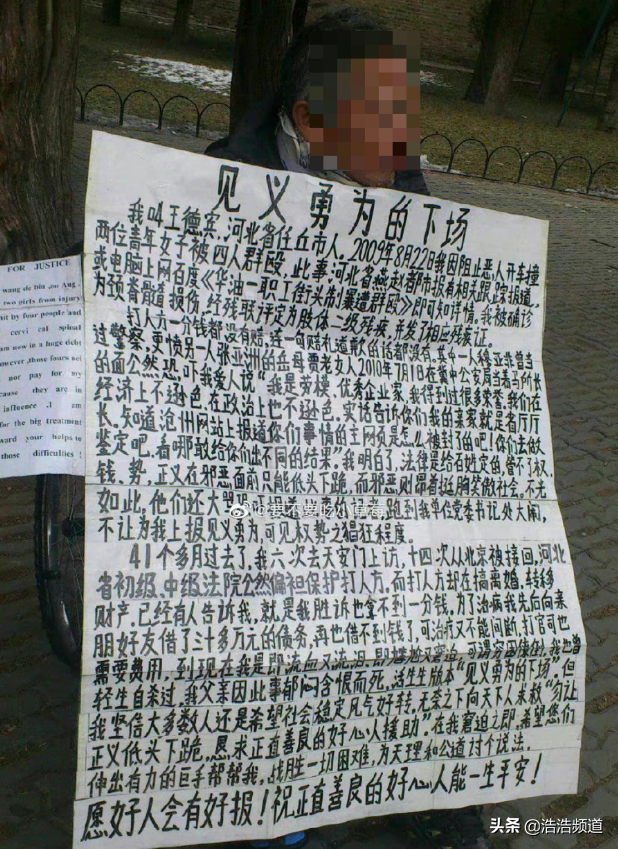 见义勇为的下场
我叫王德宾,河北省任丘市人。2009年8月22日我因阻止恶人开车撞
两位青年女子被四人群殴,此事河北省燕赵都市报有相关跟踪报道,
或电脑上网百度《华油一职工街头制暴遭群殴》即可知详情。我被确诊
为颈脊髓损伤,经残联评定为肢体二级残疾,并发了相应残疾证。
打人方一分钱都没有赔,连一句赔礼道歉的话都没有。其中一人
过警察,更愤另一人
的面公然恐吓我爱人说“我是劳模,优秀企业家,我得到过很多荣誉,我们在
经济上不逊色,在政治上也不逊色。实话告诉你们我的亲家就是省厅厅
长。知道沧州网站上报道你们事情的主网页是怎么被封了的吧!你们去做
鉴定吧,看哪敢给你们出不同的结果。”我明白了,法律是给百姓定的,管不了权、
钱、势,正义在邪恶面前只能低头下跪,而邪恶则昂首挺胸笑傲社会。不光
如此,他们还大 跑到我单位党委书记处大闹,
不让为我上报见义勇为,可见权势之猖狂程度。
41个多月过去了,我六次去天安门上访,十四次从北京被接回,河北
省初级、中级法院公然偏袒保护打人方。而打人方却在搞离婚、转移
财产。已经有人告诉我,就是我胜诉也拿不到一分钱,为了治病我先后向亲
朋好友借了三十多万元的债务,再也借不到钱了,可治疗又不能间断,打官司也
需要费用,到现在我是即流血又流泪、
轻生自杀过,我父亲因此事郁闷含恨而死,活生生版本“见义勇为的下场”但
我坚信大多数人还是希望社会稳定风气好转,无奈之下向天下人求救“勿让
正义低头下跪,恳求正直善良的好心人援助”。在我窘迫之即,希望您们
伸出有力的巨手帮帮我,战胜一切困难,为天理和公道讨个说法。
愿好人会有好报!祝正直善良的好心人能一生平安!
FOR JUSTICE
wang de bin .on Aug
two girls from injury
it by four people and
cervi cal spinal
am now in a huge debt
however ,those fours not
not pay for my
cause they are in
influence .I am
for the big treatment
ward your helps to
those difficulties !
头条 @浩浩频道